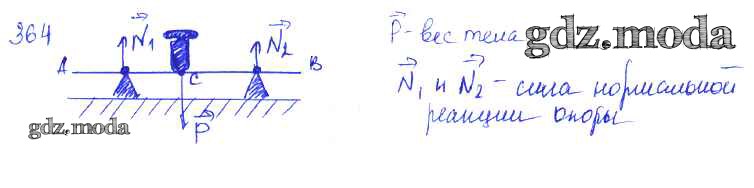 364
N₁
N₂
A
C
B
P
gdz.moda
P - вес тела
gdz.moda
N₁ и N₂ - сила нормальной
реакции опоры